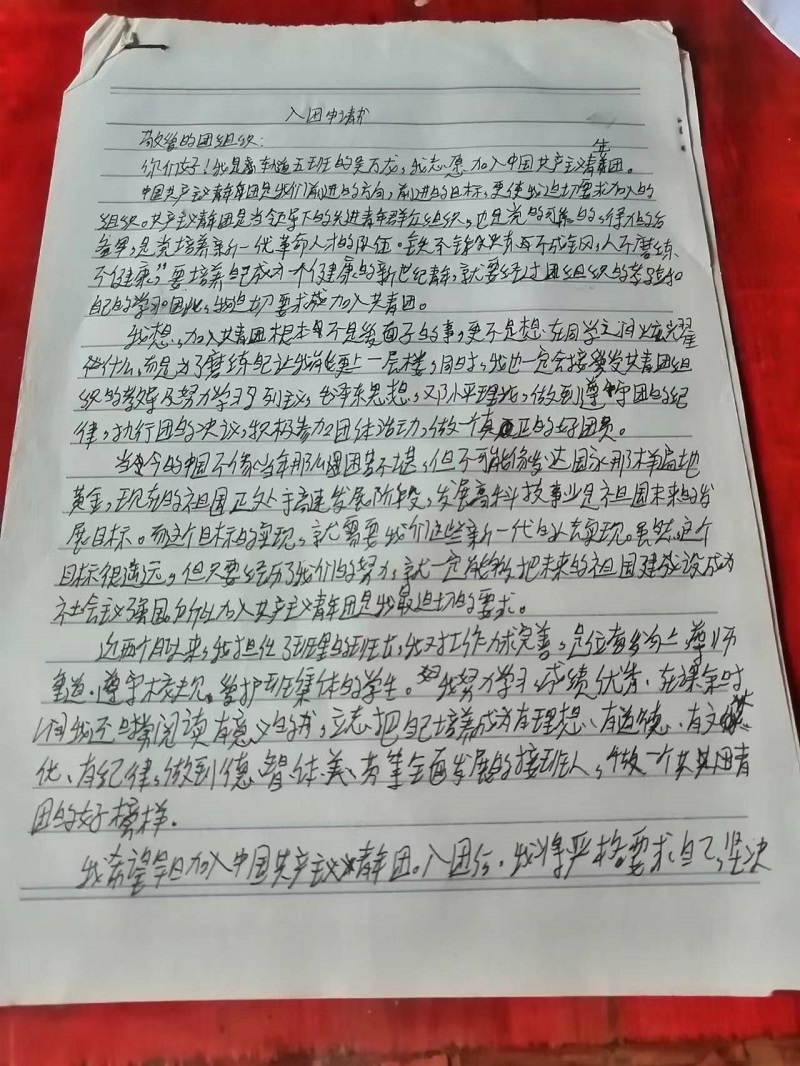 入团申请书
敬爱的团组织:
你们好!我是高本道五班的吴万龙,我志愿加入中国共产主义青年团。
中国共产主义青年团是我们前进的方向,前进的目标,更使我迫切要求加入的
组织。共产主义青年团是党领导下的先进青年群众组织,也是党的可靠的、得力的后
备军,是党培养新一代革命人才的队伍。铁不锤炼
不健康,"要培养自己成为一个健康的新世纪青年,就要经过团组织的教导和
自己的学习因此,我迫切要求加入共青团。
我想,加入共青团根本不是爱面子的事,更不是想在同学之间炫耀
些什么,而是为了磨练自己让我能更上一层楼,同时,我也一定会接受共青团组
织的教导及努力学习马列主义,毛泽东思想,邓小平理论,做到遵守团的纪
律,执行团的决议,积极参加团体活动,做一个真正的好团员。
当今的中国不像当年那么困苦不堪,但不可能像发达国家那样遍地
黄金,现在的祖国正处于高速发展阶段,发展高科技事业是祖国未来的发
展目标。而这个目标的实现,就需要我们这些新一代的去实现。虽然,这个
目标很遥远,但只要经历了我们的努力,就一定能够把未来的祖国建设成为
社会主义强国所以加入共产主义青年团是我最迫切的要求。
近两个月以来,我担任了班里的班长,我对工作力求完善,是位奋发向上尊师
重道、遵守校规、爱护班集体的学生。我努力学习成绩优秀,在课余时
间我还阅读有意义的书,立志把自己培养成为有理想、有道德、有文
化、有纪律,做到德、智、体、美、劳等全面发展的接班人,做一个共青
团的好榜样.
我希望早日加入中国共产主义青年团。入团后,我将严格要求自己,坚决